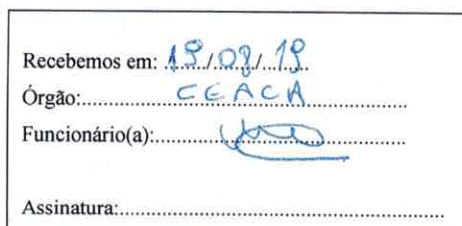 Recebemos em: 19/08/19
Órgão: CEACA
Funcionário(a):
Assinatura: